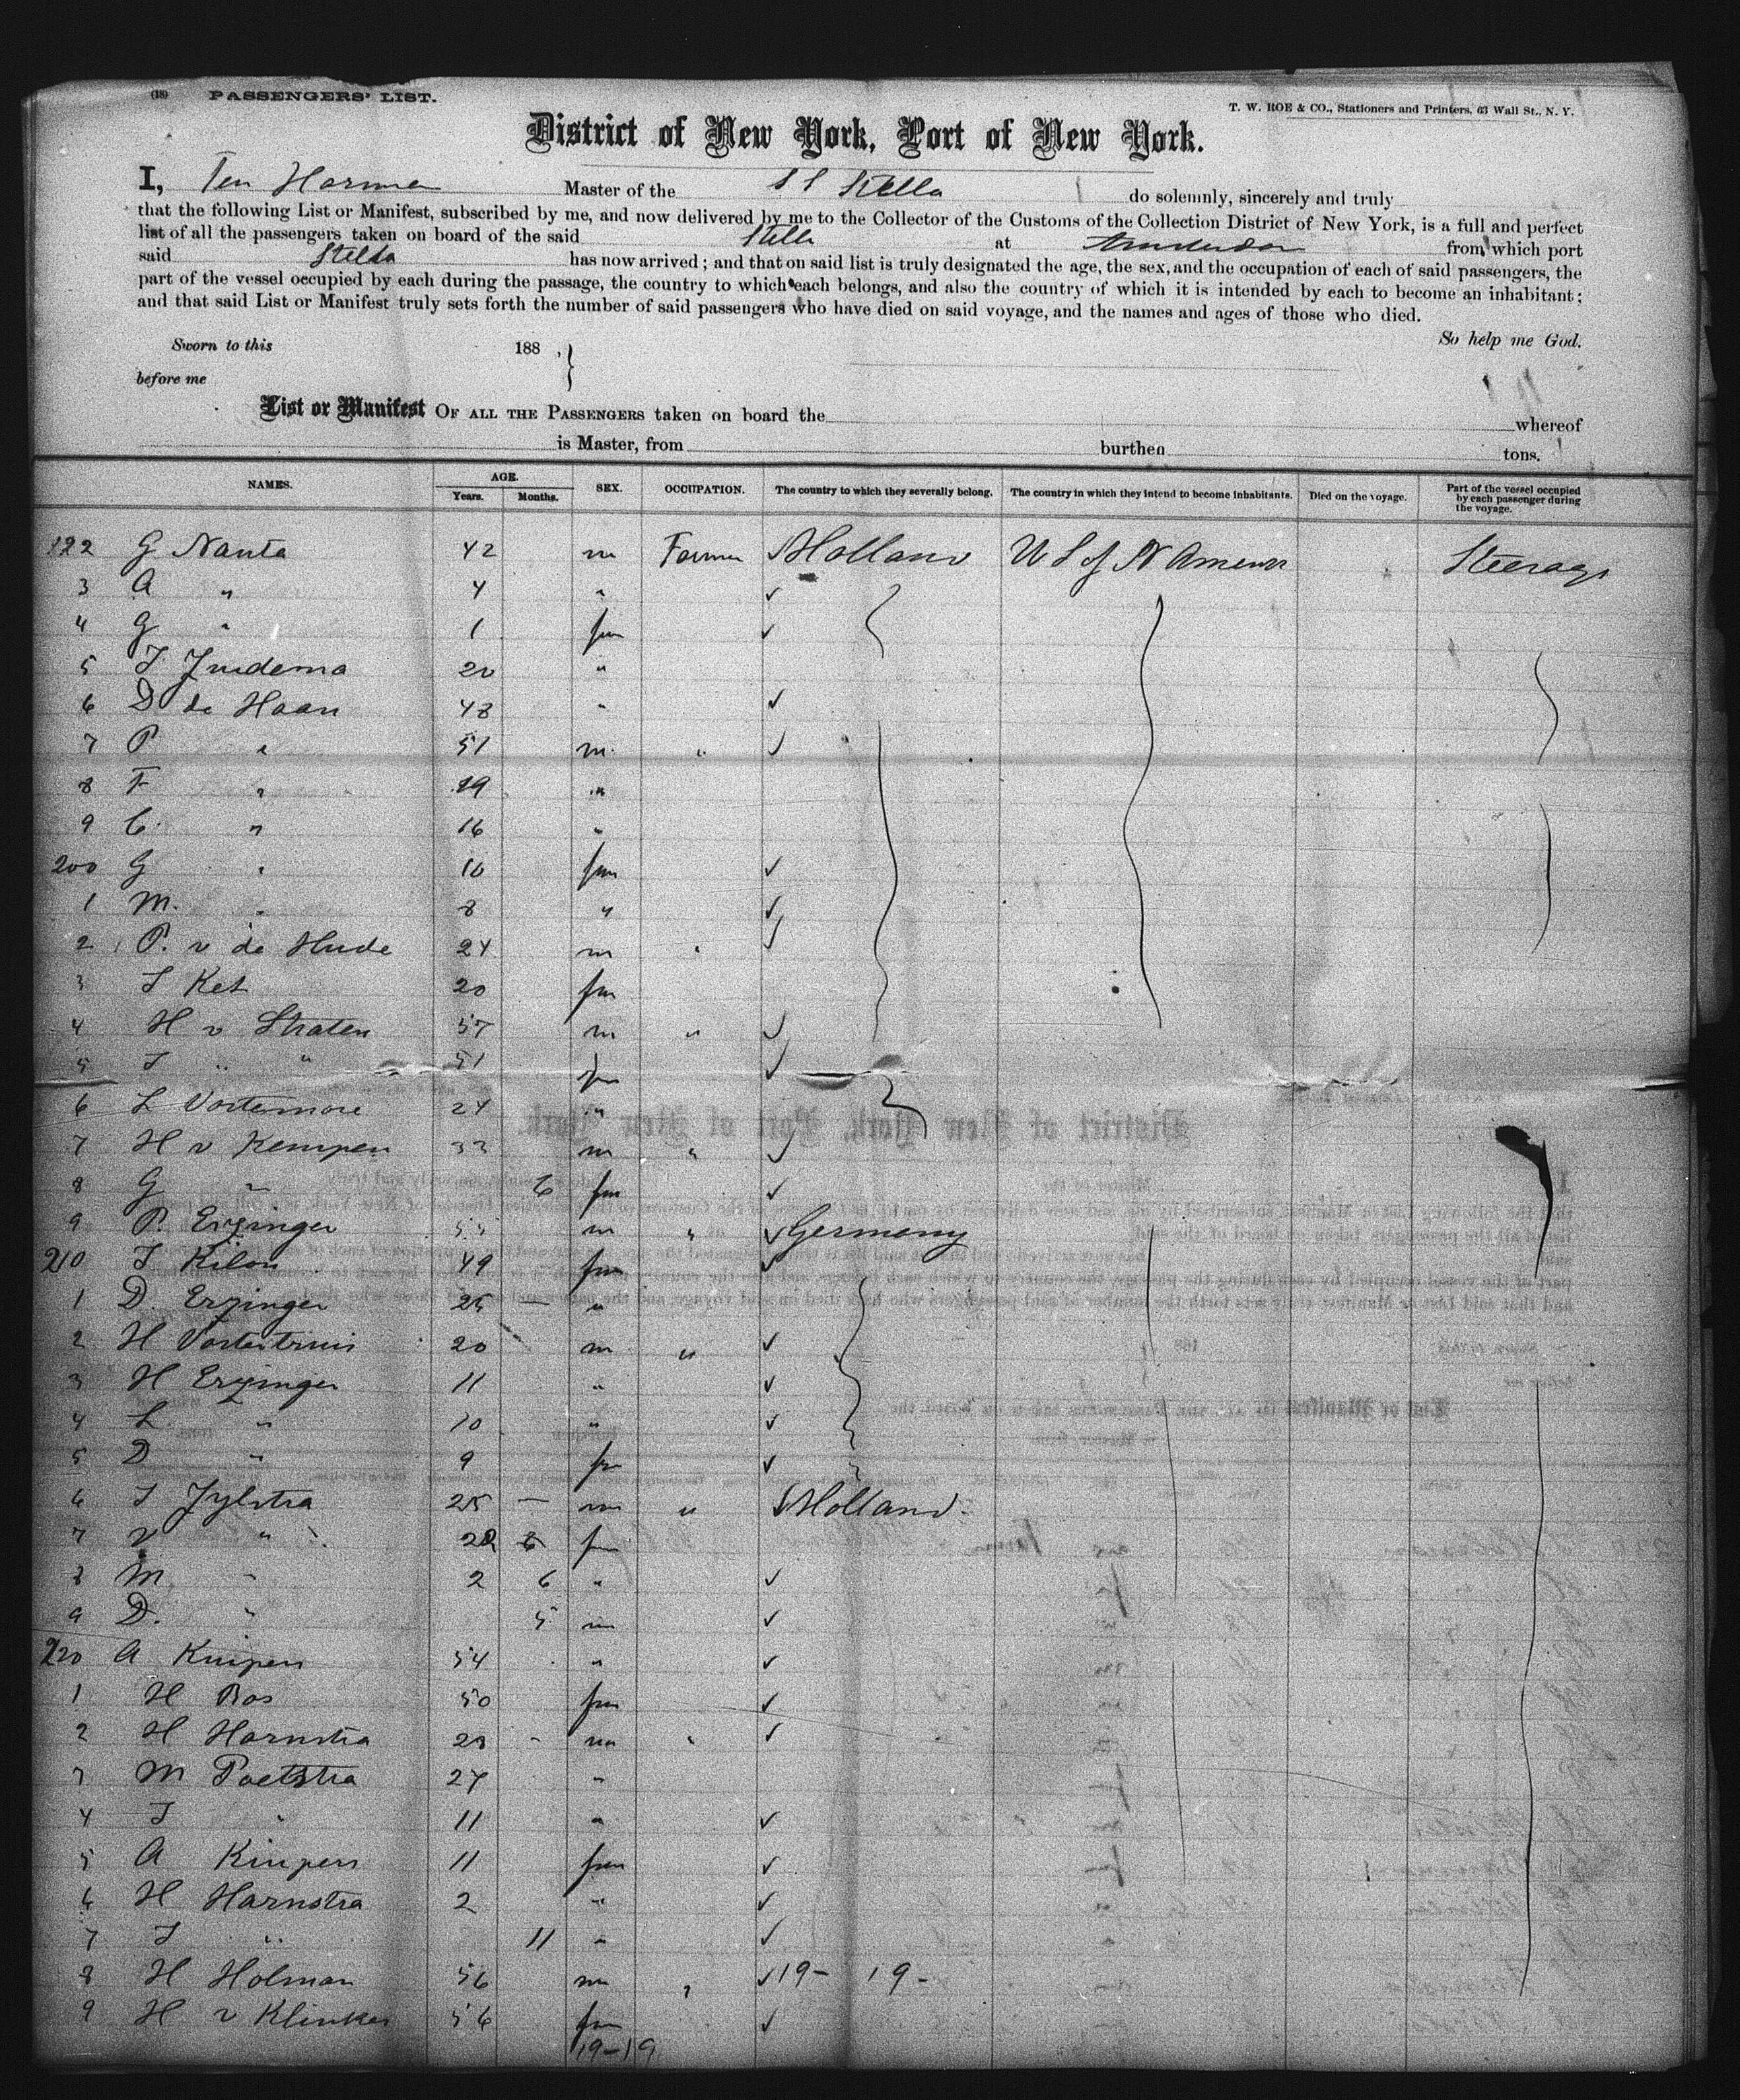 (18) PASSENGERS' LIST.
T. W. ROE & CO., Stationers and Printers, 63 Wall St., N. Y.
District of New York, Port of New York.
I, Ten Harmen Master of the S S Stella do solemnly, sincerely and truly
that the following List or Manifest, subscribed by me, and now delivered by me to the Collector of the Customs of the Collection District of New York, is a full and perfect
list of all the passengers taken on board of the said Stella at Amsterdam from which port
said Stella has now arrived; and that on said list is truly designated the age, the sex, and the occupation of each of said passengers, the
part of the vessel occupied by each during the passage, the country to which each belongs, and also the country of which it is intended by each to become an inhabitant;
and that said List or Manifest truly sets forth the number of said passengers who have died on said voyage, and the names and ages of those who died.
So help me God.
Sworn to this 188 ,
before me
List or Manifest OF ALL THE PASSENGERS taken on board the whereof
is Master, from burthen tons.
NAMES. AGE. Years. Months. SEX. OCCUPATION. The country to which they severally belong. The country in which they intend to become inhabitants. Died on the voyage. Part of the vessel occupied by each passenger during the voyage.
192 G Nauta 42 m Farmer Holland U S of N America Steerage
3 A " 4 "
4 G " 1 fm
5 J. Juidema 20 "
6 D de Haan 48 "
7 P " 51 m "
8 F " 19 "
9 C. " 16 "
200 G " 10 fm
1 M. " 8 "
2 P. v de Hude 24 m "
3 J Ket 20 fm
4 H v Straten 57 m "
5 J " " 51 fm
6 L Vortemore 24 "
7 H v Kempen 33 m "
8 G " 6 fm
9 P. Erzinger m " Germany
210 J Kilon 49 fm
1 D. Erzinger 25 — "
2 H Vortestruis 20 m "
3 H Erzinger 11 "
4 L. " 10 "
5 D " 9 fm
6 J Jylstra 25 — m " Holland.
7 V " fm
8 M " 2 6 "
9 D. " 5 m
220 A Knipers 54 "
1 H Bos 50 fm
2 H Harnstra 28 - m "
3 M Poetstra 27 "
4 J " 11 "
5 A Knipers 11 fm
6 H Harnstra 2 "
7 J " 11 "
8 H Holman 56 m " 19 - 19 -
9 H v Klinker 56 fm
19-19